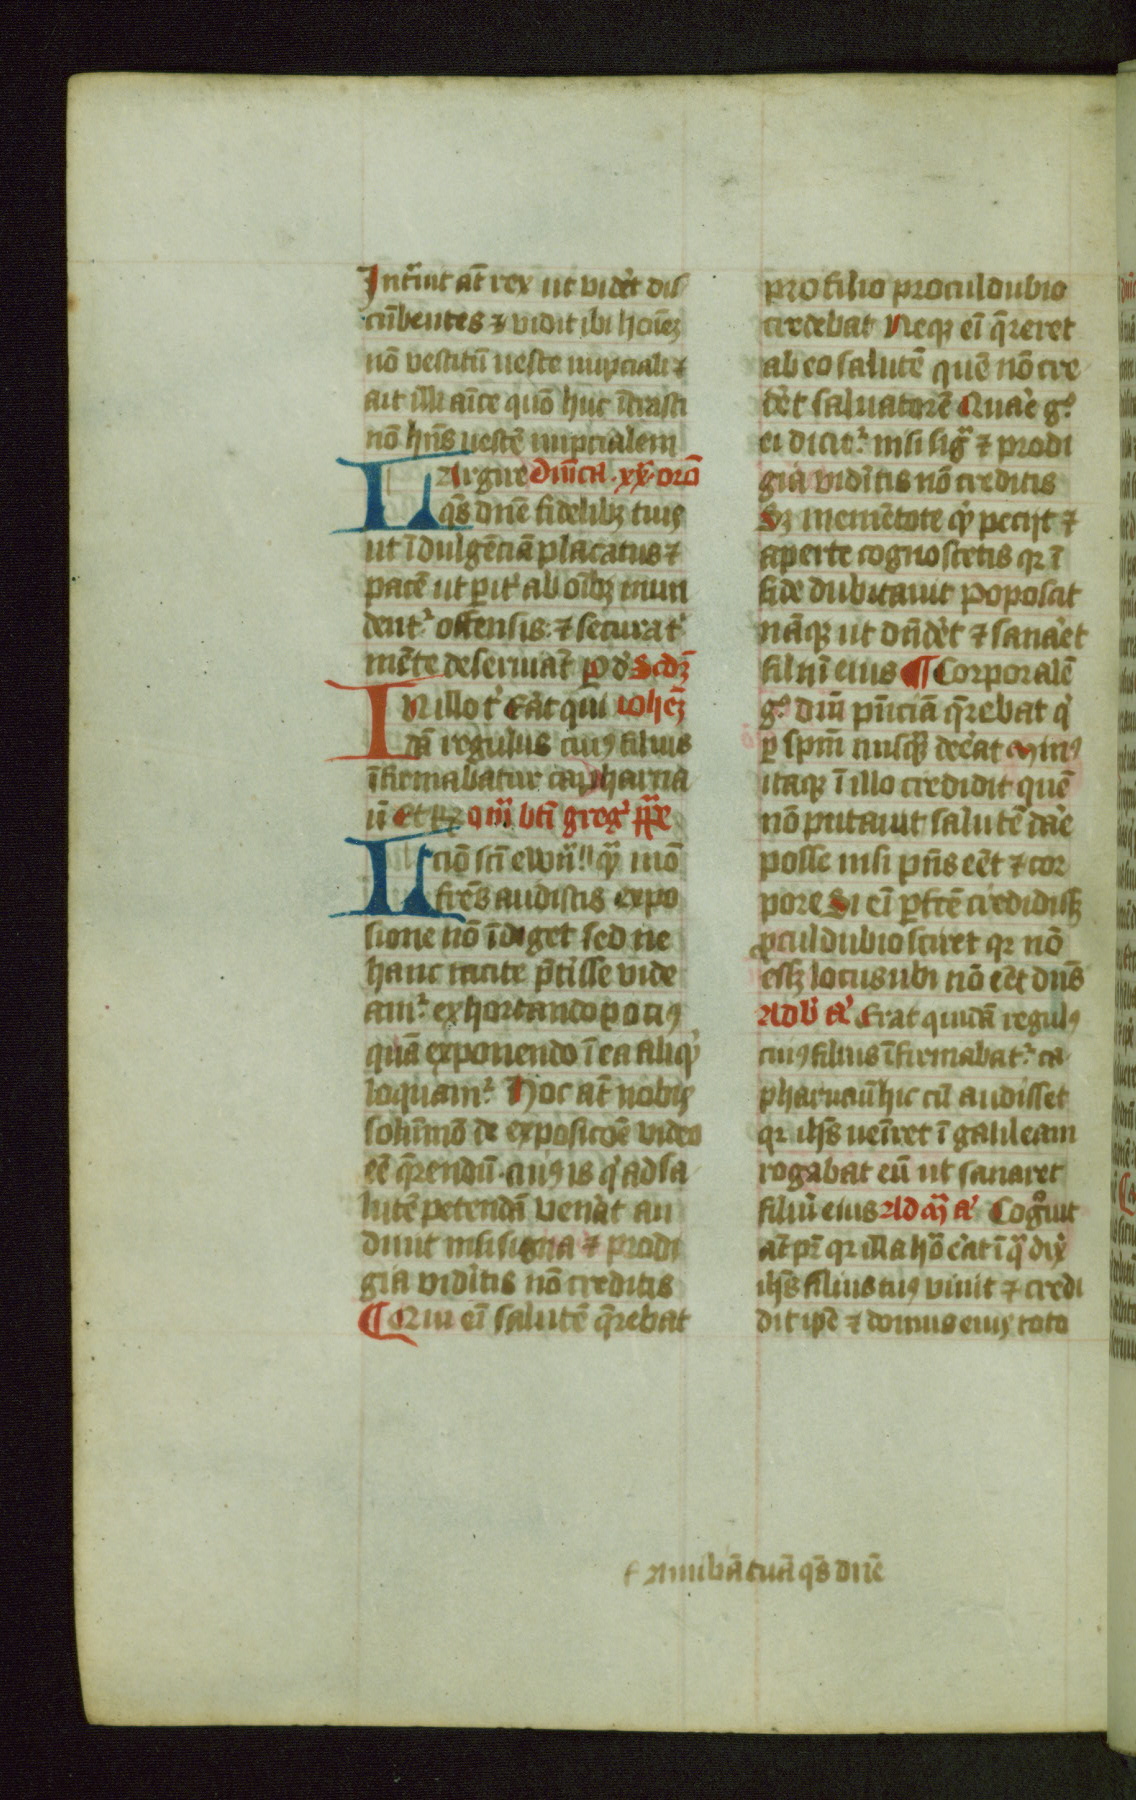 Intͥuit at̄ rex ut vidēt dis
cūbentes ⁊ vidit ibi hoīeꝫ
nō vestitū ueste nupciali ⁊
ait illi amīce quō huc ītrasti
nō hn̄s uestē nupcialem
Largire Dn̄ica .xx. oro͞
q̄s dn̄e fidelibꝫ tuis
ut īdulgēciā placatus ⁊
pacē ut pariṫ ab oībꝫ mun
dentᷣ offensis ⁊ secura ṫ
mēte deseruiāt p d̄ Scdꝫ
In illo ṫ Eāt qui Iohēꝫ
dā regulus cuiꝯ filius
īfirmabatur capharna
ū Et Rꝫ Om̄ bt̄i gregͥ pp̄e
Lctiō sci ewn̄ˡˡ qͣ mō
frēs audistis expo
sione nō īdiget sed ne
hanc tacite p̄tisse vide
amᷣ exhortando pociꝯ
quā exponendo ī ea aliqͥ
loquamᷣ Hoc at̄ nobis
solūmō de exposicōe video
eē q̄rendū cur is qͥ ad sa
lutē petendā veñat au
diuit nisi signa ⁊ prodi
gia videritis nō creditis
¶ Qui eī salutē q̄rebat
pro filio proculdubio
credebat Neqꝫ eī q̄reret
ab eo salutē quē nō cre
dēt saluatorē Quaͬe gͦ
ei dicitᷣ nisi sigͣ ⁊ prodi
gia viditis nō creditis
Sꝫ memētote qͥ peciit ⁊
aperte cognoscetis qꝛ ī
fide dubitauit Poposcit
nāqꝫ ut dn̄dēt ⁊ sanaēt
filiū eius ¶ Corporalē
gͦ dn̄i pn̄ciā q̄rebat qͥ
ꝑ spm̄ nusqͣ deēat Minꝯ
itaqꝫ ī illo credidit quē
nō putauit salutē daͬe
posse nisi pn̄s eēt ⁊ cor
pore Si eī ꝑfcē credidissꝫ
ꝓculdubio sciret qꝛ nō
essꝫ locus ubi nō eēt dn̄s
Ad bn̄ aͣ Erat quidā regulꝯ
cuiꝯ filius īfirmabatᷣ ca
pharnaū hic cū audisset
qꝛ ihs̄ uenīret ī galileam
rogabat eū ut sanaret
filiū eius Ad mͣ aͣ Cogͦuit
at̄ pr̄ qꝛ illa hō ēat ī qͣ dix͛
ihs̄ filius tuꝯ viuit ⁊ credi
dit ip̄e ⁊ domus eiuꝯ tota
famibā tuā q̄s dn̄e